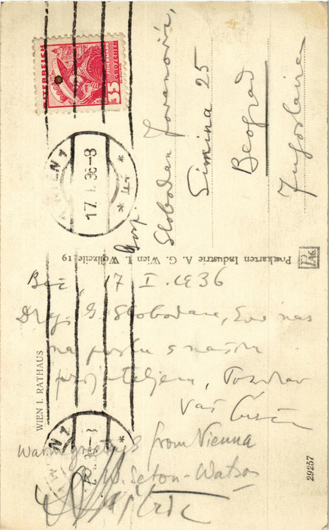 ÖSTERREICH
35
WIEN 1
17.I.36-8
Gosp.
Slobodan Jovanović,
Simina 25
Beograd
Jugoslavia
Postkarten Industrie A. G. Wien I. Wollzeile 19
Beč, 17 I. 1936
Dragi G. Slobodane, Evo nas
na poslu s našim
prijateljem, Pozdrav
Vaš
Warm greetings from Vienna
R.W. Seton-Watson
WIEN I. RATHAUS
29257